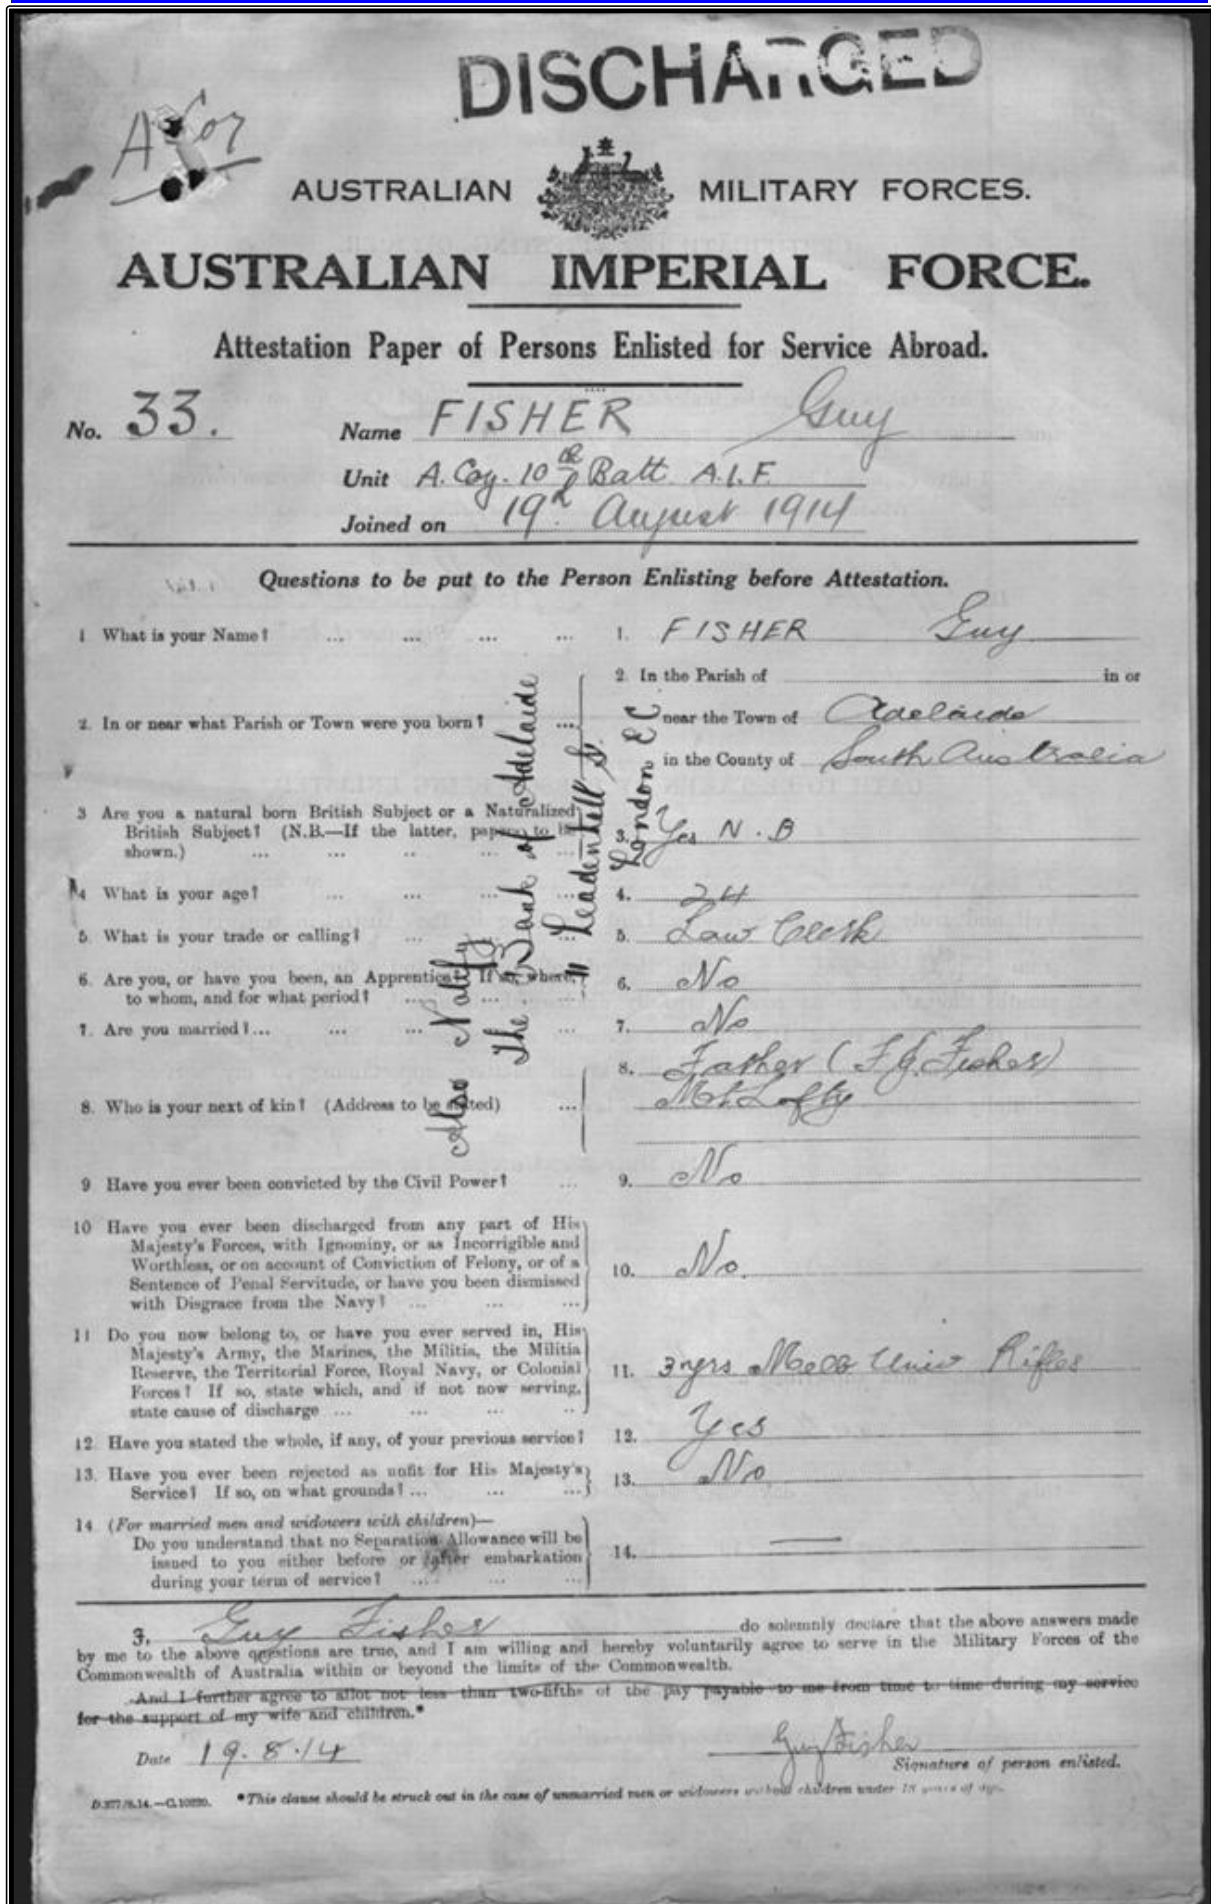 DISCHARGED
AUSTRALIAN MILITARY FORCES.
AUSTRALIAN IMPERIAL FORCE.
Attestation Paper of Persons Enlisted for Service Abroad.
No. 33. Name FISHER Guy
Unit A. Coy. 10th Batt. A.I.F.
Joined on 19th August 1914
Questions to be put to the Person Enlisting before Attestation.
1 What is your Name? ... ... ... ... 1. FISHER Guy
2. In the Parish of in or
2. In or near what Parish or Town were you born? ... near the Town of Adelaide
in the County of South Australia
3 Are you a natural born British Subject or a Naturalized
British Subject? (N.B.—If the latter, papers to be
shown.) ... ... ... ... ... 3. Yes N.B
4 What is your age? ... ... ... ... 4. 24
5. What is your trade or calling? ... ... ... 5. Law Clerk
6. Are you, or have you been, an Apprentice? If so, where,
to whom, and for what period? ... ... ... 6. No
7. Are you married?... ... ... ... ... 7. No
8. Who is your next of kin? (Address to be stated) ... 8. Father (F.G. Fisher)
Mt. Lofty
Also Notify
The Bank of Adelaide
11 Leadenhell St.
London EC
9 Have you ever been convicted by the Civil Power? ... 9. No
10 Have you ever been discharged from any part of His
Majesty's Forces, with Ignominy, or as Incorrigible and
Worthless, or on account of Conviction of Felony, or of a
Sentence of Penal Servitude, or have you been dismissed
with Disgrace from the Navy? ... ... ... 10. No.
11 Do you now belong to, or have you ever served in, His
Majesty's Army, the Marines, the Militia, the Militia
Reserve, the Territorial Force, Royal Navy, or Colonial
Forces? If so, state which, and if not now serving,
state cause of discharge ... ... ... .. 11. 3 yrs Melb Univ Rifles
12. Have you stated the whole, if any, of your previous service? 12. Yes
13. Have you ever been rejected as unfit for His Majesty's
Service? If so, on what grounds? ... ... ... 13. No.
14 (For married men and widowers with children)—
Do you understand that no Separation Allowance will be
issued to you either before or after embarkation
during your term of service? ... ... ... 14. —
I, Guy Fisher do solemnly declare that the above answers made
by me to the above questions are true, and I am willing and hereby voluntarily agree to serve in the Military Forces of the
Commonwealth of Australia within or beyond the limits of the Commonwealth.
And I further agree to allot not less than two-fifths of the pay payable to me from time to time during my service
for the support of my wife and children.*
Date 19.8.14 Guy Fisher
Signature of person enlisted.
D.377/8.14.—C.10220. *This clause should be struck out in the case of unmarried men or widowers without children under 18 years of age.